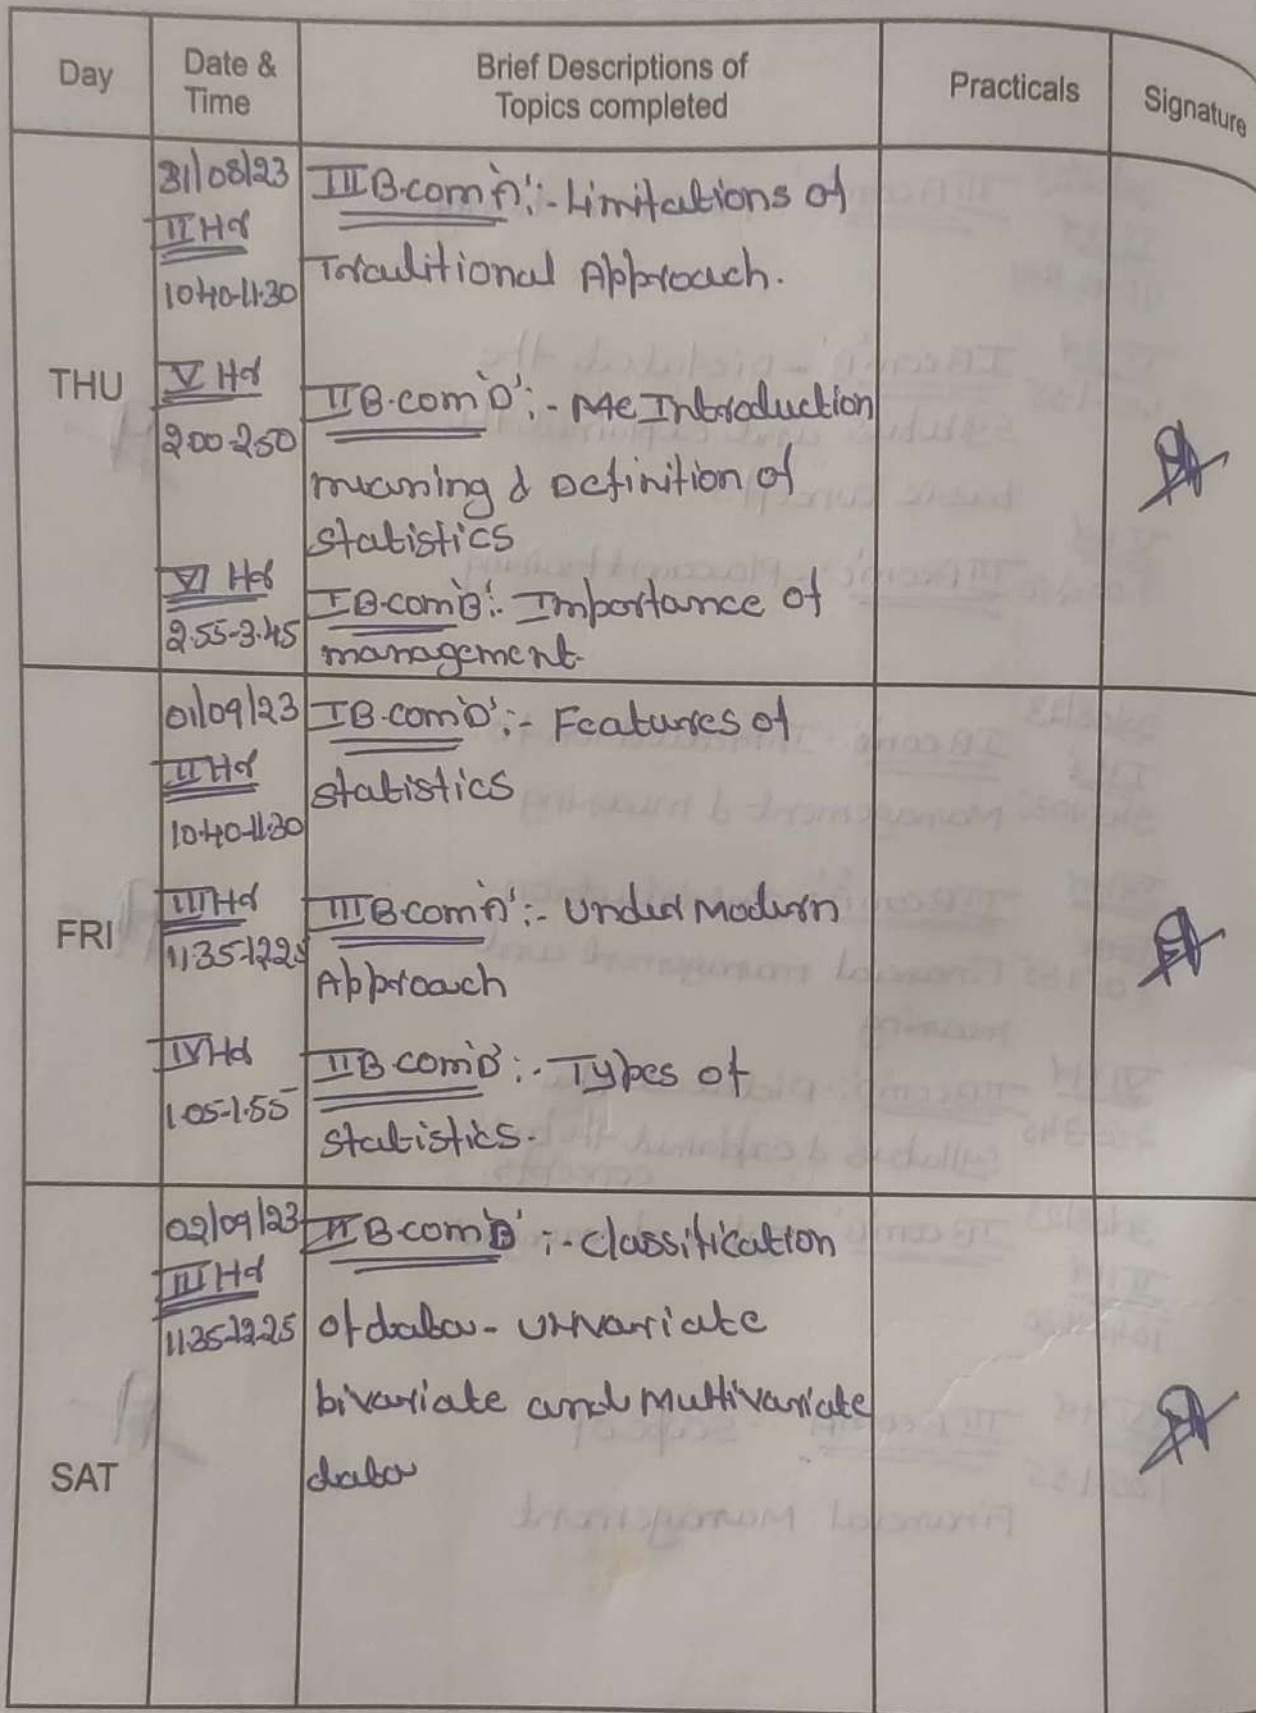 Day
Date &
Time
Brief Descriptions of
Topics completed
Practicals
Signature
THU
31/08/23
II Hr
10.40-11.30
III B.com 'A' :- Limitations of
Traditional Approach.
V Hr
2.00-2.50
II B.com 'D' :- Introduction
meaning & Definition of
statistics
VI Hr
2.55-3.45
I B.com 'B' :- Importance of
management.
FRI
01/09/23
II Hr
10.40-11.30
I B.com 'D' :- Features of
statistics
III Hr
11.35-12.25
III B.com 'A' :- Under Modern
Approach
IV Hr
1.05-1.55
II B.com 'D' :- Types of
statistics.
SAT
02/09/23
III Hr
11.35-12.25
II B.com 'D' :- Classification
of data - Univariate
bivariate and Multivariate
data